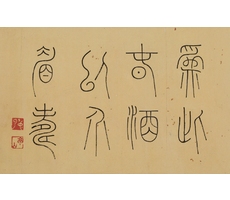 為此
春酒
以介
眉壽